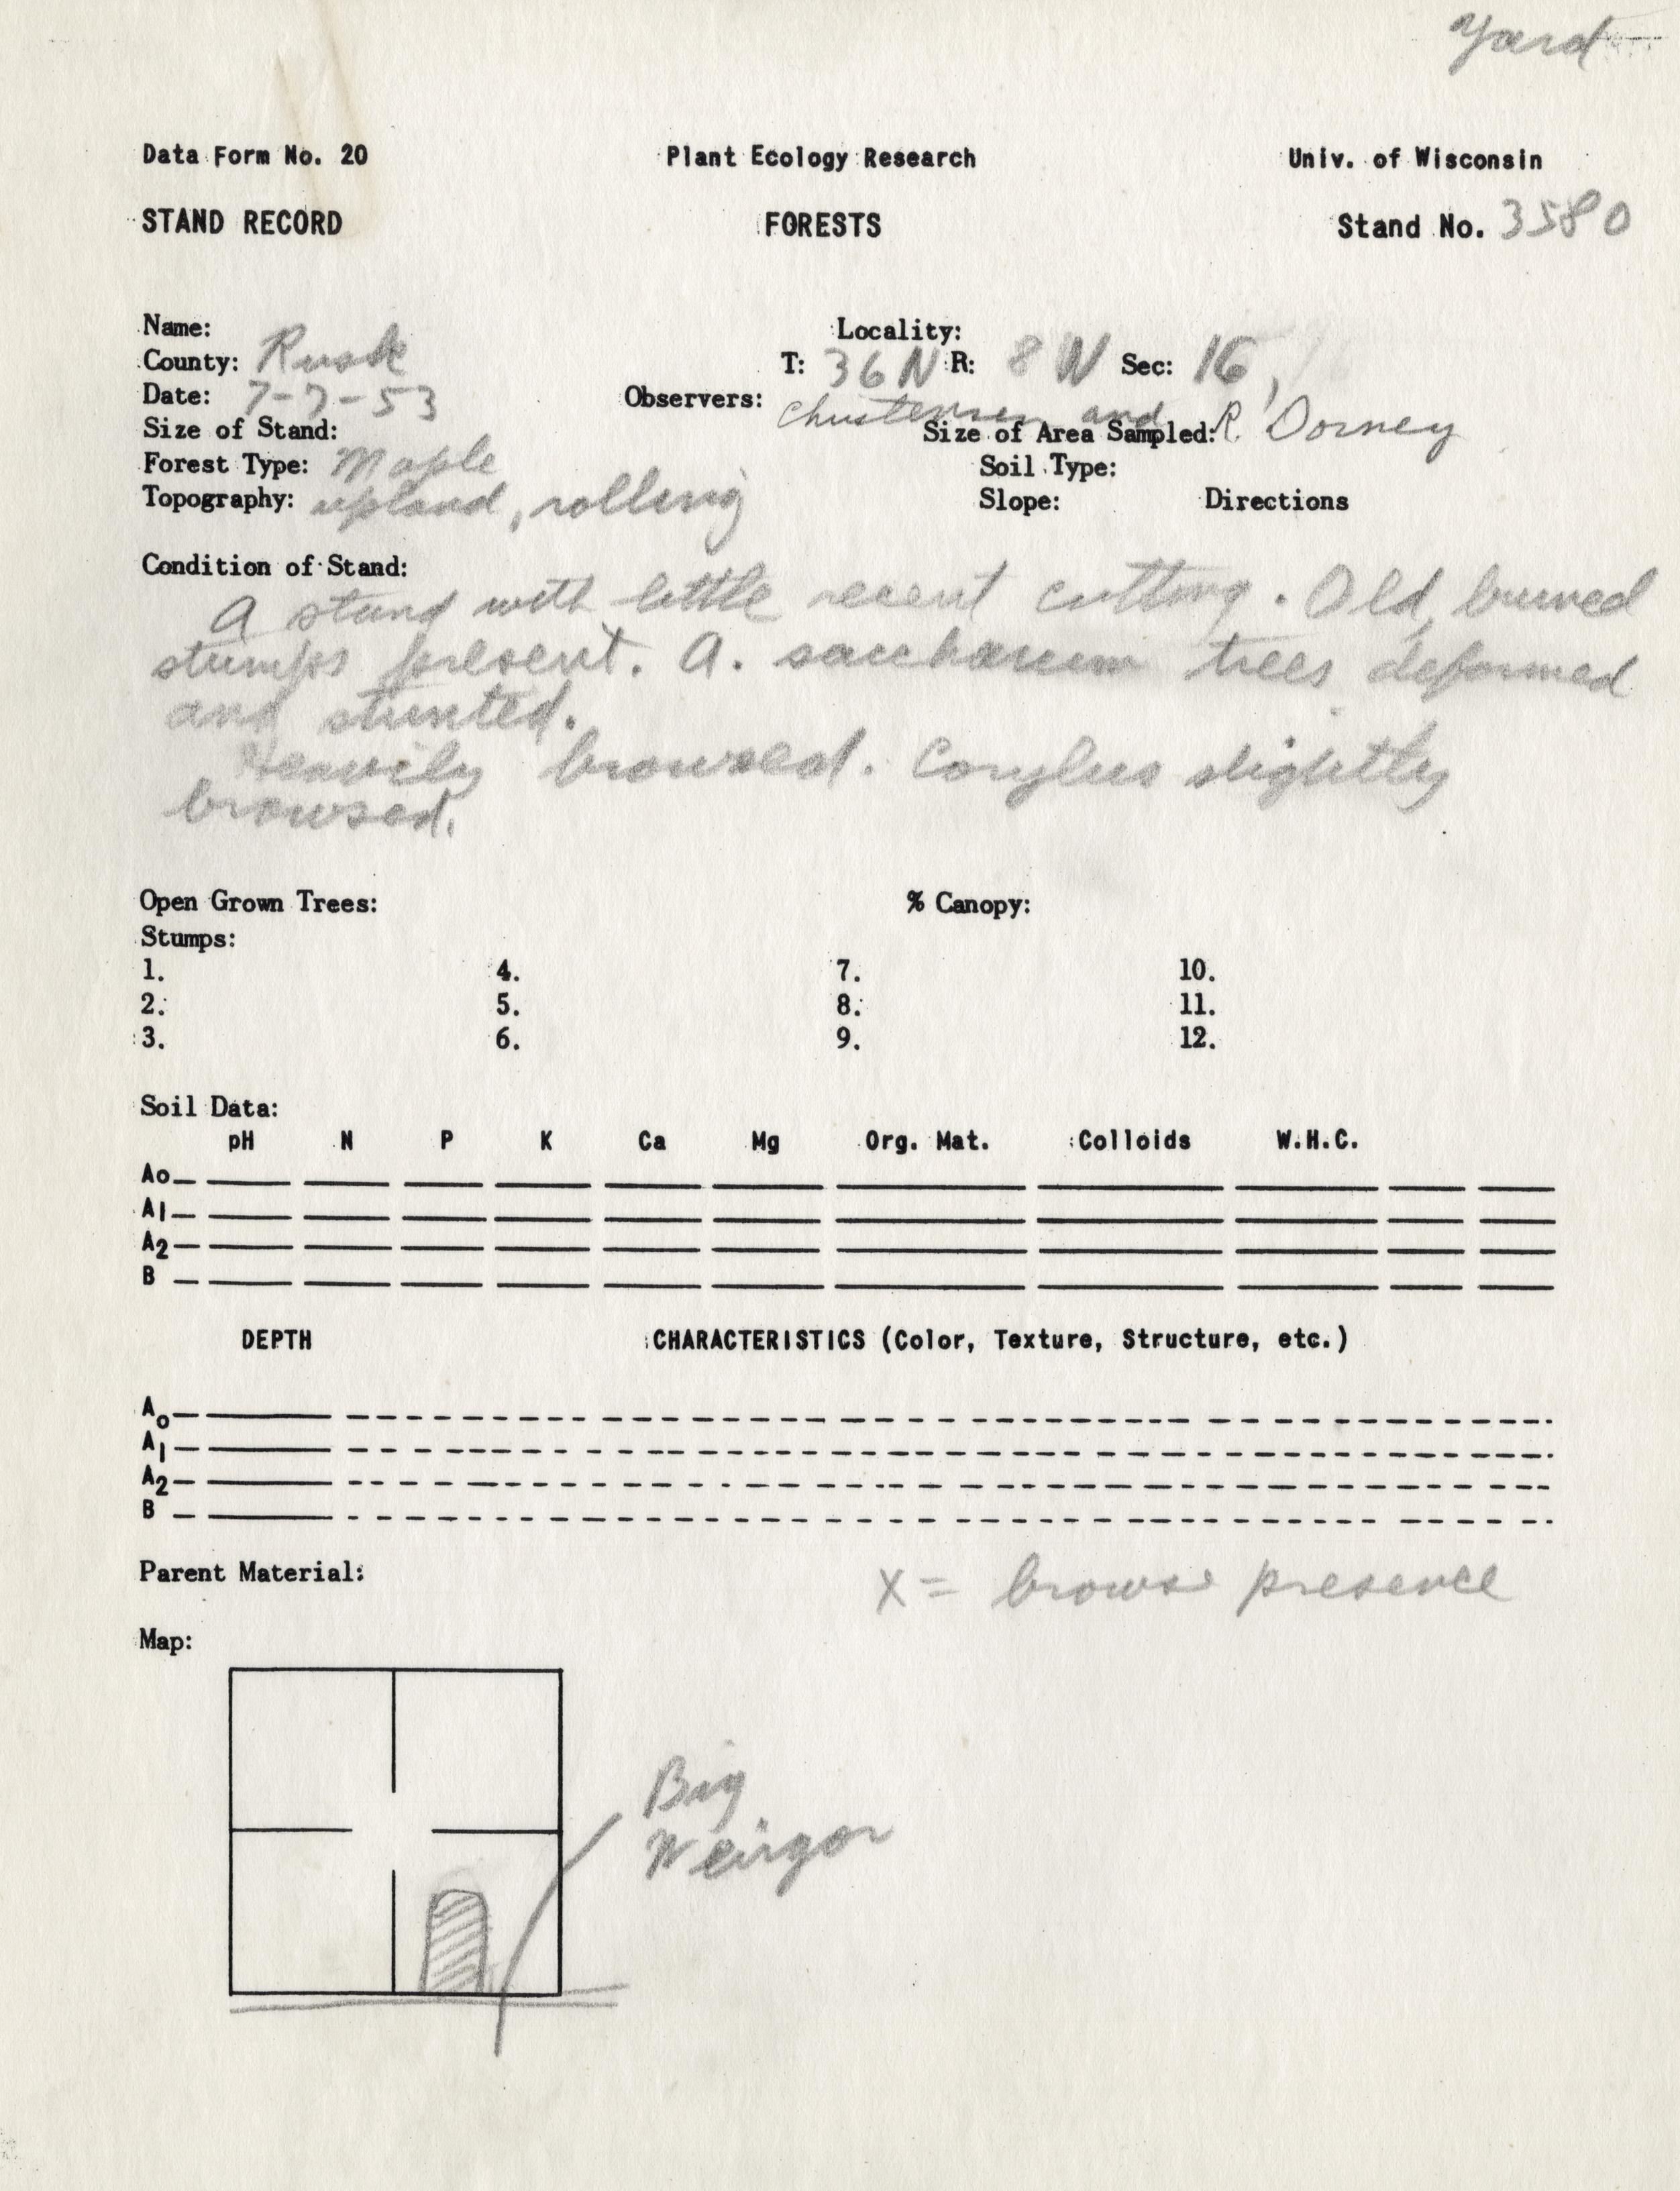 Yard
Data Form No. 20 Plant Ecology Research Univ. of Wisconsin
STAND RECORD FORESTS Stand No. 3580
Name: Locality:
County: Rusk T: 36N R: 8 W Sec: 16,
Date: 7-7-53 Observers: Christensen and R. Dorney
Size of Stand: Size of Area Sampled:
Forest Type: Maple Soil Type:
Topography: upland, rolling Slope: Directions
Condition of Stand:
A stand with little recent cutting. Old, burned
stumps present. A. saccharum trees deformed
and stunted.
Heavily browsed. Corylus slightly
browsed.
Open Grown Trees: % Canopy:
Stumps:
1. 4. 7. 10.
2. 5. 8. 11.
3. 6. 9. 12.
Soil Data:
pH N P K Ca Mg Org. Mat. Colloids W.H.C.
Ao
A1
A2
B
DEPTH CHARACTERISTICS (Color, Texture, Structure, etc.)
Ao
A1
A2
B
Parent Material: X = browse presence
Map:
Big
Weirgor